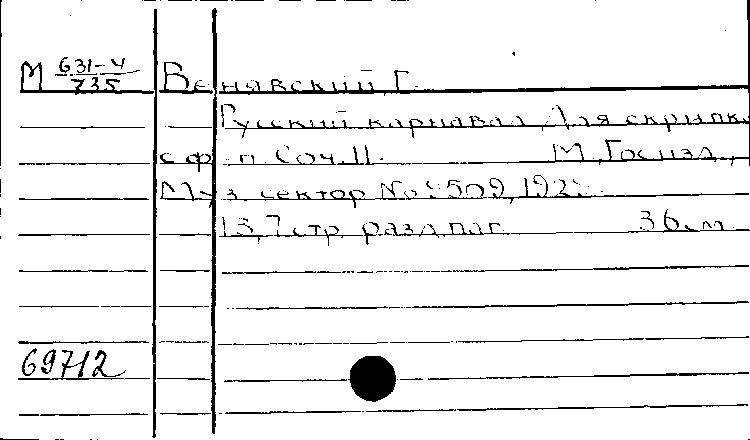 М 631-4/735 Венявский, Г.
Русский карнавал. Для скрипк
с ф-п. Соч. 11. М., Госизд.,
Муз. сектор
13, 7 стр. разд. паг. 36 см.
69712